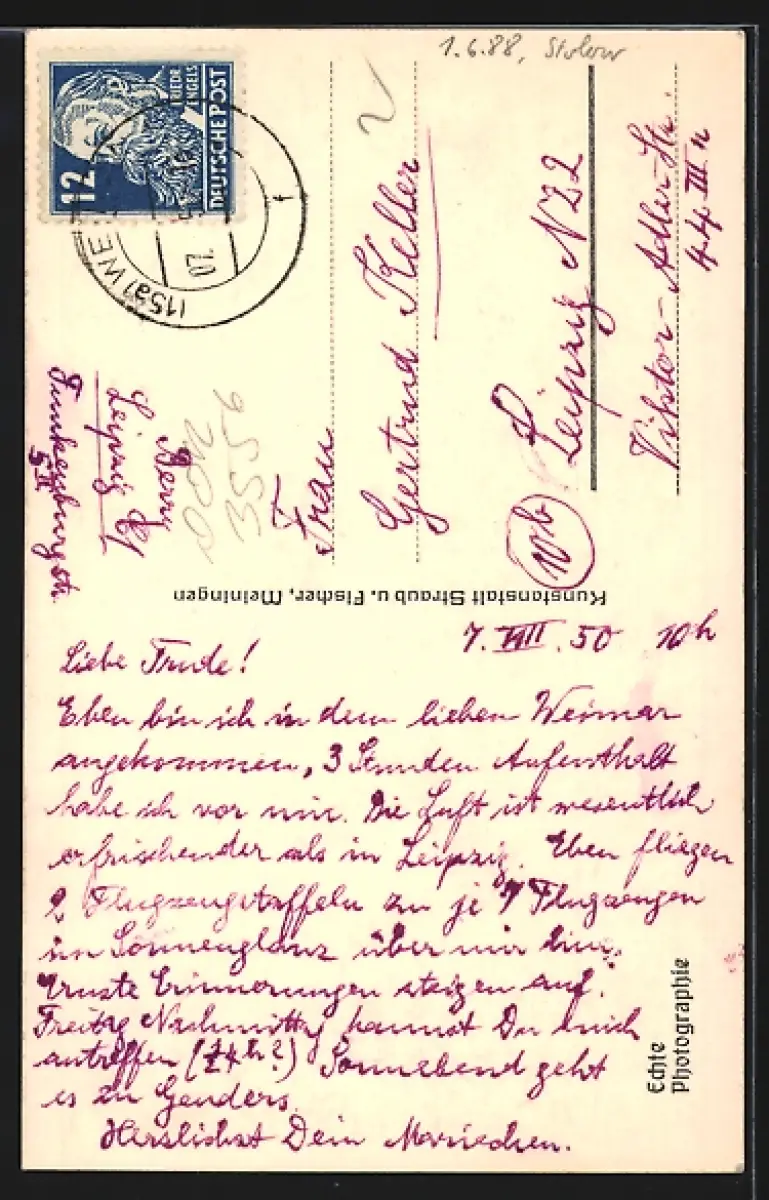 1.6.88,
12
FRIEDR.
ENGELS
DEUTSCHE POST
(15a) WE
07.
f
Berry
Leipzig C1
Funkenburgstr.
5 II
3556
Frau
Gertrud Keller
10b
Leipzig N22
Viktor-Adler-Str.
44 III r
Kunstanstalt Straub u. Fischer, Meiningen
7. VIII. 50 10h
Liebe Trude!
Eben bin ich in dem lieben Weimar
angekommen, 3 Stunden Aufenthalt
habe ich vor mir. Die Luft ist wesentlich
erfrischender als in Leipzig. Eben fliegen
2 Flugzeugstaffeln zu je 7 Flugzeugen
im Sonnenglanz über mir hin.
Ernste Erinnerungen steigen auf.
Freitag Nachmittag kannst Du mich
antreffen Sonnabend geht
es zu Genders.
Herzlichst Dein Mariechen.
Echte
Photographie